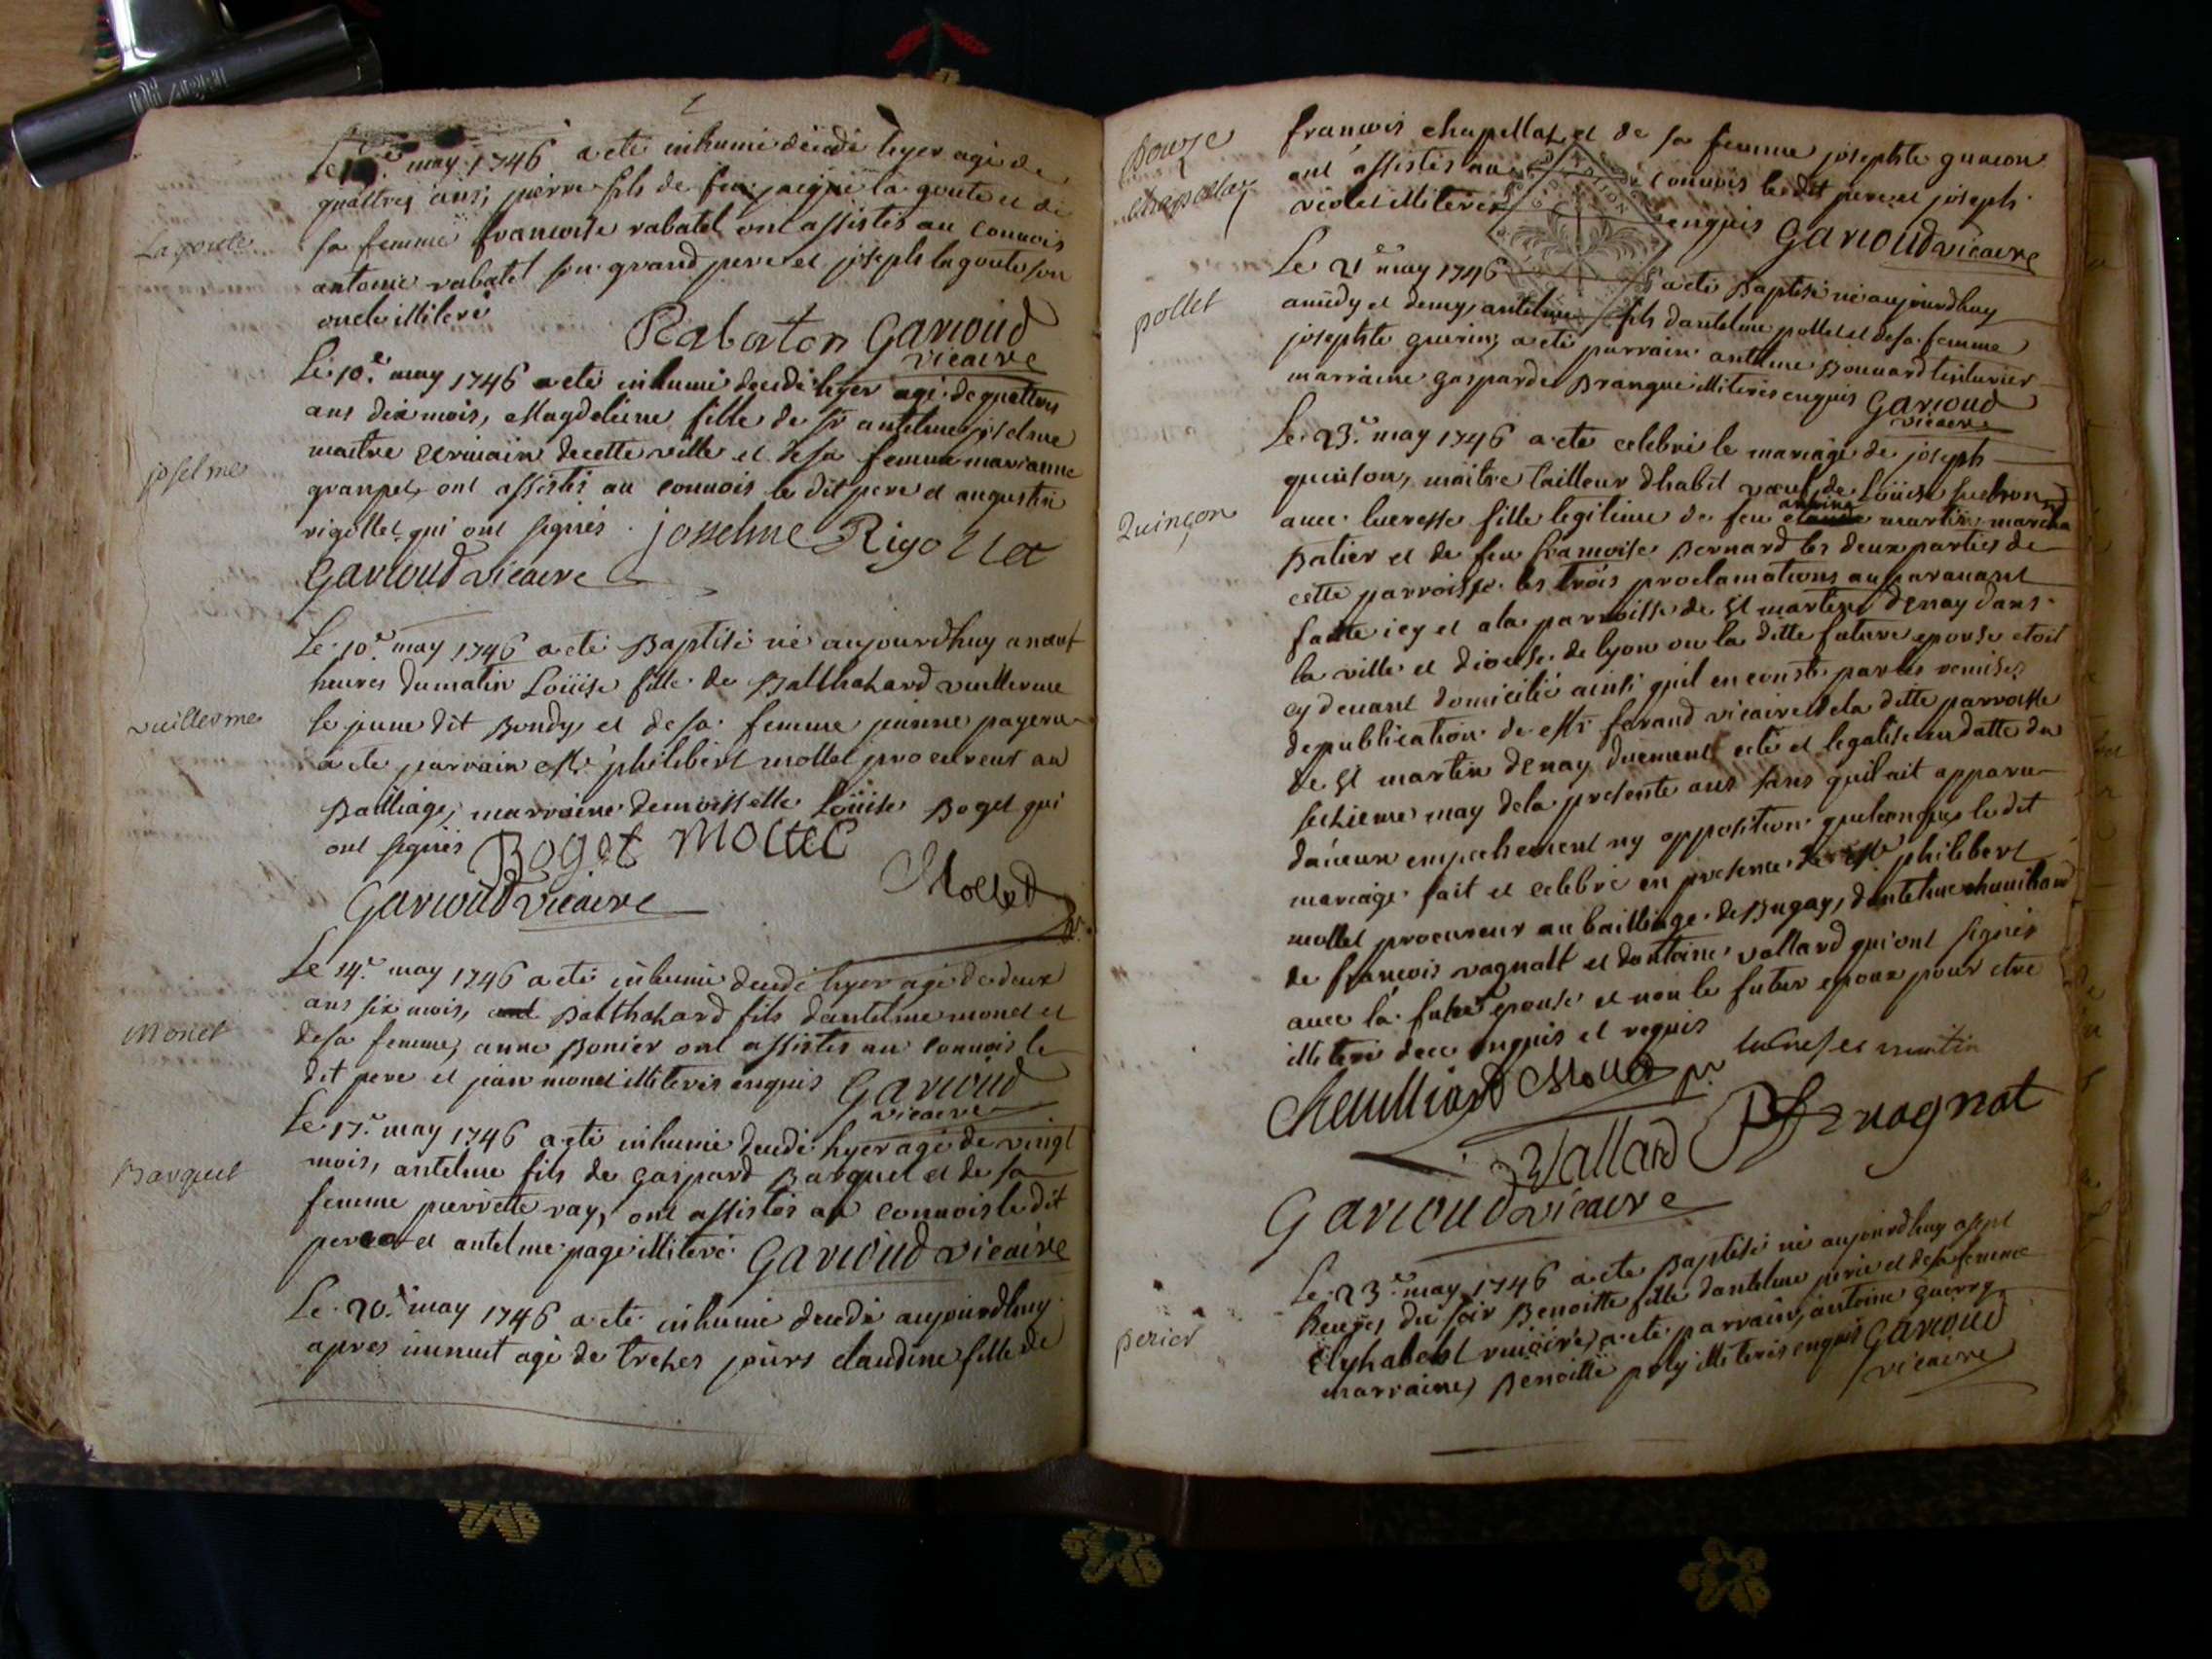 may 1746 a eté inhumé decedé hyer agé de
quattres ans, pierre fils de feu la goute et de
Lagoute
sa femme francoise rabatel ont assistés au convois
antoine rabatel son grand pere et joseph lagoute son
oncle illiteré
Rabaton Garioud
vicaire
Le 10.e may 1746 a eté inhumé decedé hyer agé de quattres
ans dix mois, Magdeleine fille de sr antelme joselme
maitre ecrivain de cette ville et de sa femme marianne
joselme
granpet, ont assistés au convois le dit pere et augustin
rigollet qui ont signés josselme Rigollet
Garioud vicaire
Le 10.e may 1746 a eté Baptisé né aujourdhuy a neuf
heures du matin Loüise fille de Balthazard vuillerme
vuillerme
le jeune dit Bondy et de sa femme jeanne payera
a eté parrain Mr philibert mollet procureur au
Balliage, marraine demoisselle Loüise Boget qui
ont signés Boget Mollet
Mollet
Garioud vicaire
Le 14.e may 1746 a eté inhumé decedé hyer agé de deux
ans six mois, Balthazard fils dantelme monet et
Monet
de sa femme, anne Bonier ont assistés au convois le
dit pere et jean monet illiterés enquis Garioud
vicaire
Le 17.e may 1746 a eté inhumé decedé hyer agé de vingt
mois, antelme fils de gaspard Barquet et de sa
Barquet
femme pierrette ray, ont assistés au convois le dit
pere et antelme page illiteré Garioud vicaire
Le 20.e may 1746 a eté inhumé decedé aujourdhuy
apres minuit agé de trezes jours claudine fille de
francois chapellat et de sa femme josephte
ont assistés au convois le dit pere et joseph
chapellat
violet illiterés enquis Garioud vicaire
Le 21.e may 1746 a eté Baptisé né aujourdhuy
pollet
a midy et demy, antelme fils dantelme pollet et de sa femme
josephte guerin, a eté parrain antelme Bonnard teinturier
marraine gasparde Brangue illiterés enquis Garioud
vicaire
Le 23.e may 1746 a eté celebré le mariage de joseph
quinson, maitre tailleur dhabit vœuf de Loüise
Quinçon
avec lucresse fille legitime de feu antoine martin, marcha
Batier et de feu francoise Bernard les deux parties de
cette parroisse les trois proclamations auparavant
faitte icy et a la parroisse de St martin denay dans
la ville et diocese de lyon ou la ditte future epouse etoit
cy devant domicilié ainsi quil en conste par les remises
de publication de Mr ferand vicaire de la ditte parroisse
de St martin denay duement et legalisé en datte du
sezieme may de la presente ans sans quil ait apparu
daucun empechement ny opposition quelconques le dit
mariage fait et celebré en presence de Mr philibert
mollet procureur au bailliage de Bugay, dantelme
de francois vagnatt et dantoine vallard qui ont signés
avec la future epouse et non le futur epoux pour etre
illiteré de ce enquis et requis lucresse martin
Mollet pr
Vallard vagnat
Garioud vicaire
Le 23.e may 1746 a eté Baptisé né aujourdhuy a sept
heures du soir Benoitte fille dantelme perié et de sa femme
perier
Elyzabeht a eté parrain, antoine guerry
marraine, Benoitte poly illiterés enquis Garioud
vicaire